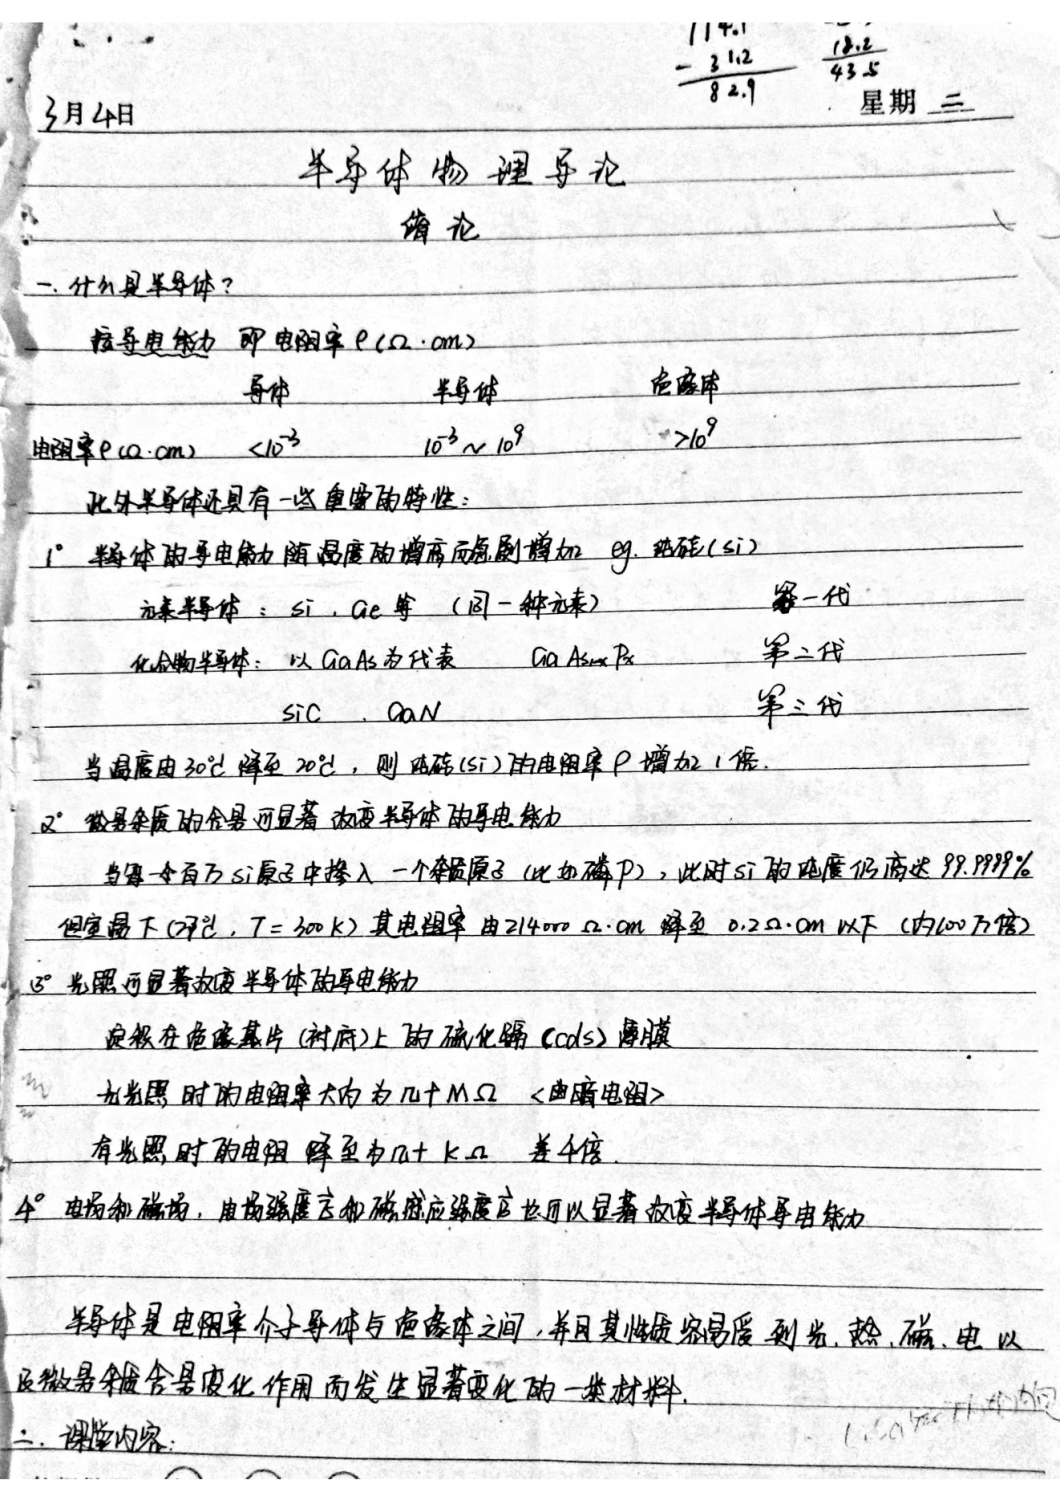 114.1
- 31.2
82.9
18.2
43.5
3月4日
星期 三
半导体物理导论
绪论
一. 什么是半导体?
按导电能力 即电阻率ρ(Ω·cm)
导体 半导体 绝缘体
电阻率ρ(Ω·cm) <10⁻³ 10⁻³~10⁹ >10⁹
此外半导体还具有一些重要的特性:
1° 半导体的导电能力随温度的增高而急剧增加 eg. 纯硅(Si)
元素半导体: Si、Ge等 (同一种元素) 第一代
化合物半导体: 以GaAs为代表 GaAs₁₋ₓPₓ 第二代
SiC、GaN 第三代
当温度由30℃降至20℃, 则纯硅(Si)的电阻率ρ增加1倍.
2° 微量杂质的含量可显著改变半导体的导电能力
当每一个百万Si原子中掺入一个杂质原子(比如磷P), 此时Si的纯度仍高达99.9999%
但室温下(27℃, T=300K)其电阻率由214000Ω·cm降至0.2Ω·cm以下 (约100万倍)
3° 光照可显著改变半导体的导电能力
淀积在绝缘基片(衬底)上的硫化镉(CdS)薄膜
无光照时的电阻率大约为几十MΩ <由暗电阻>
有光照时的电阻降至为几十KΩ 差千倍.
4° 电场和磁场, 电场强度E和磁感应强度B也可以显著改变半导体导电能力
半导体是电阻率介于导体与绝缘体之间, 并且其性质容易受到光、热、磁、电以
及微量杂质含量变化作用而发生显著变化的一类材料.
二. 课堂内容: